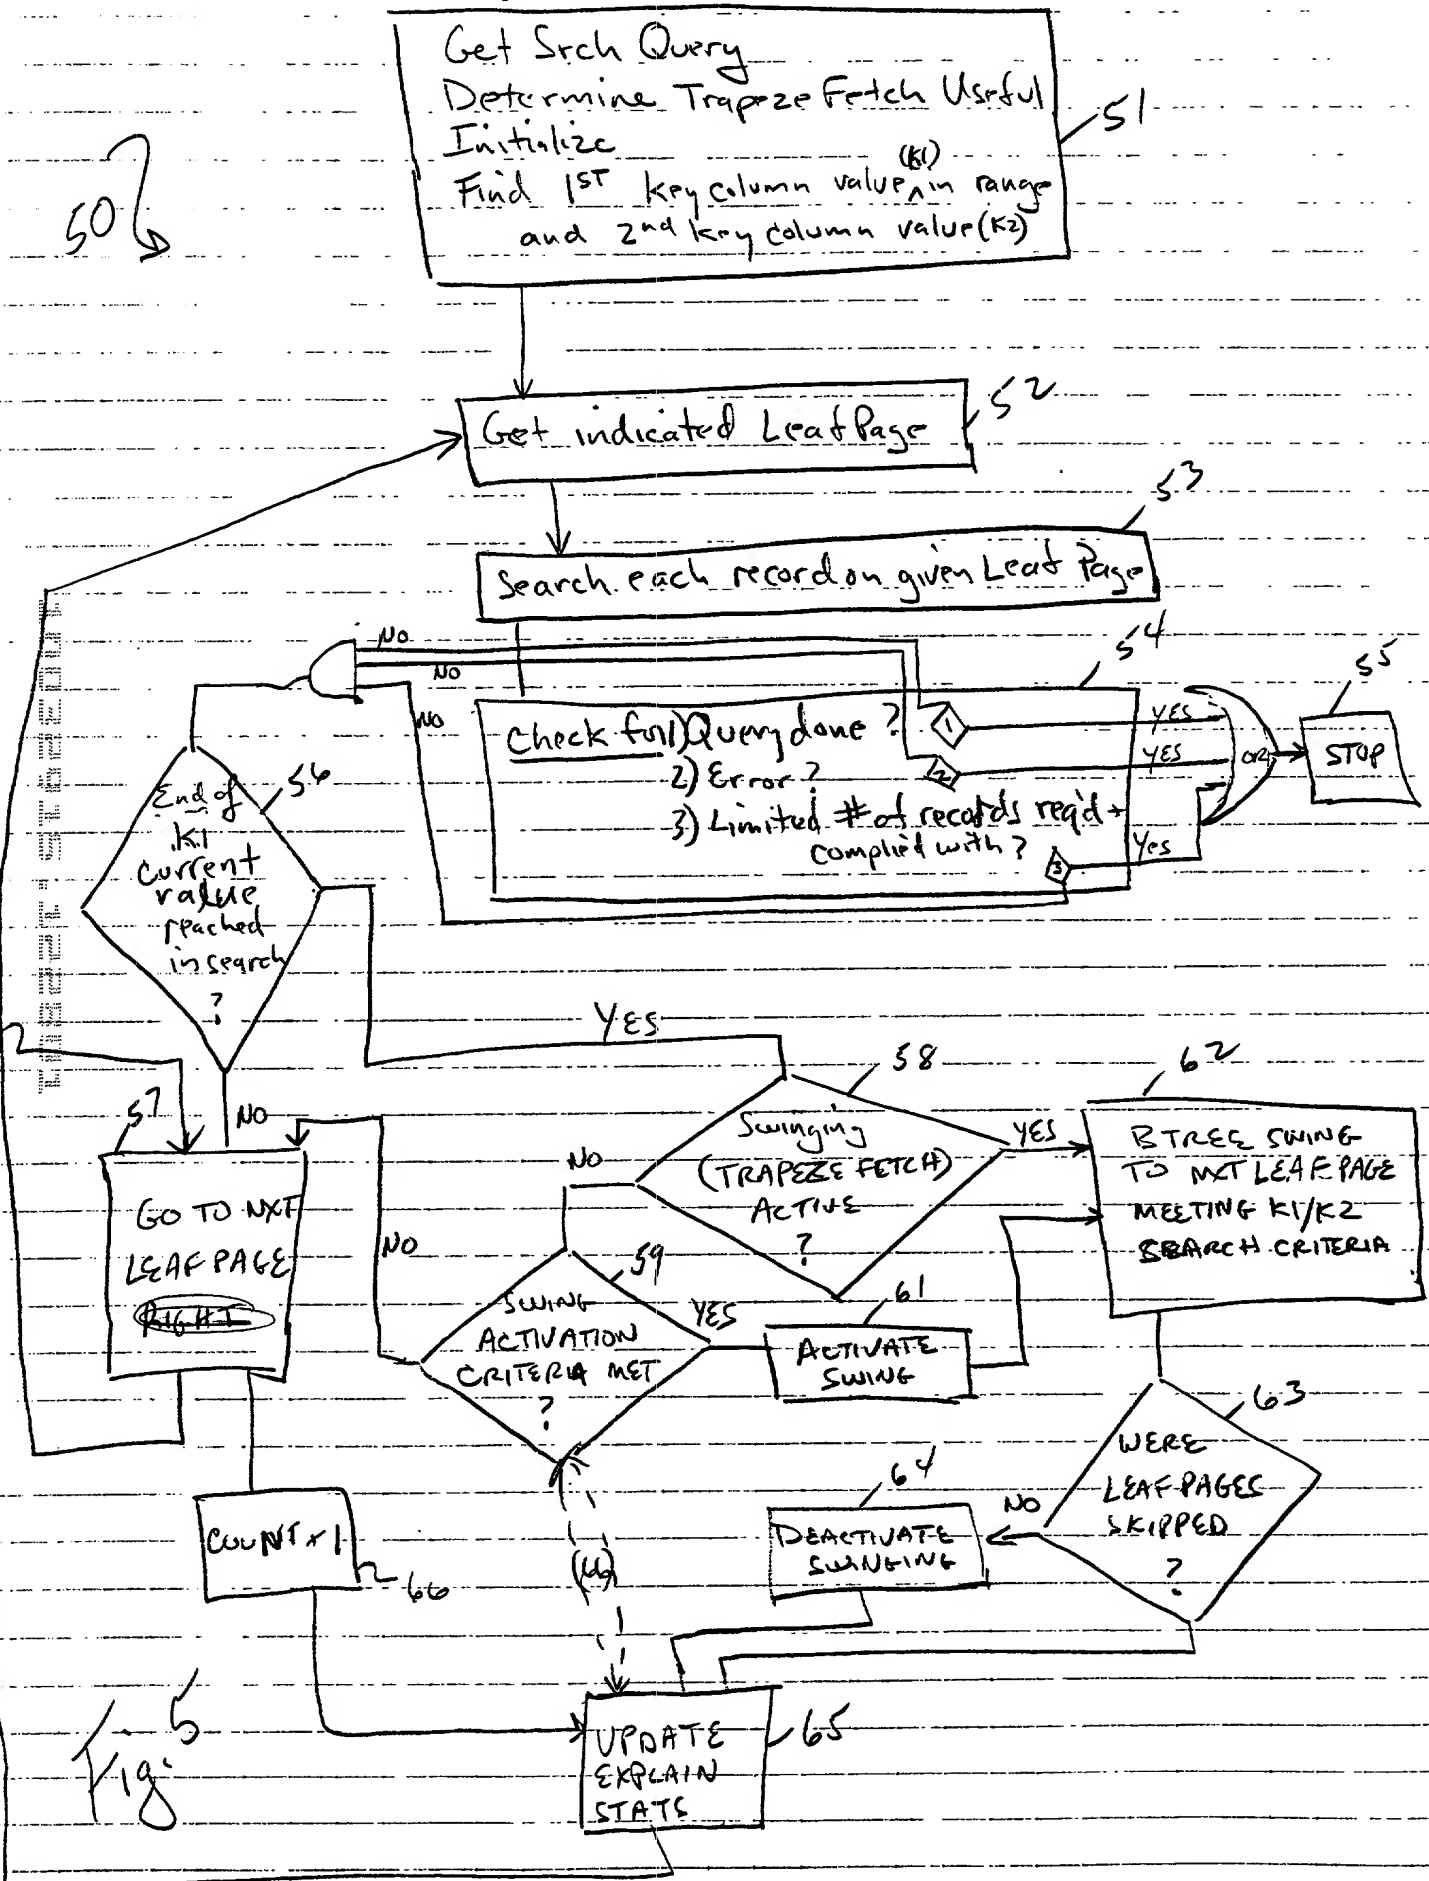 Get Srch Query
Determine Trapeze Fetch Useful
Initialize
(K1)
Find 1ST Key column value ^ in range
and 2nd key column value (K2)
51
50
Get indicated Leaf Page
52
53
Search each record on given Leaf Page
NO
NO
NO
54
55
Check for 1) Query done ?
2) Error ?
3) Limited # of records req'd +
complied with ?
1
2
3
YES
YES
Yes
OR
STOP
End of
K1
current
value
reached
in search
?
56
YES
NO
57
GO TO NXT
LEAF PAGE
RIGHT
58
Swinging
(TRAPEZE FETCH)
ACTIVE
?
NO
YES
62
BTREE SWING
TO NXT LEAF PAGE
MEETING K1/K2
SEARCH CRITERIA
NO
59
SWING
ACTIVATION
CRITERIA MET
?
YES
61
ACTIVATE
SWING
63
WERE
LEAF PAGES
SKIPPED
?
NO
64
DEACTIVATE
SWINGING
COUNT + 1
66
(66)
UPDATE
EXPLAIN
STATS
65
Fig. 5